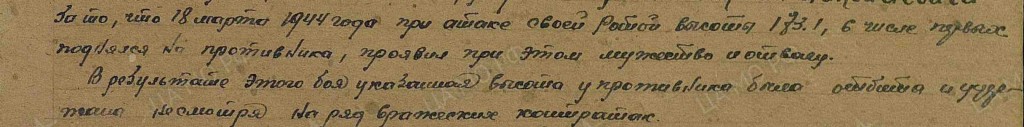 за то, что 18 марта 1944 года при атаке своей Ротой высоты 173.1, в числе первых
поднялся на противника, проявил при этом мужество и отвагу.
В результате этого боя указанная высота у противника была отбита и удер-
жана несмотря на ряд вражеских контратак.